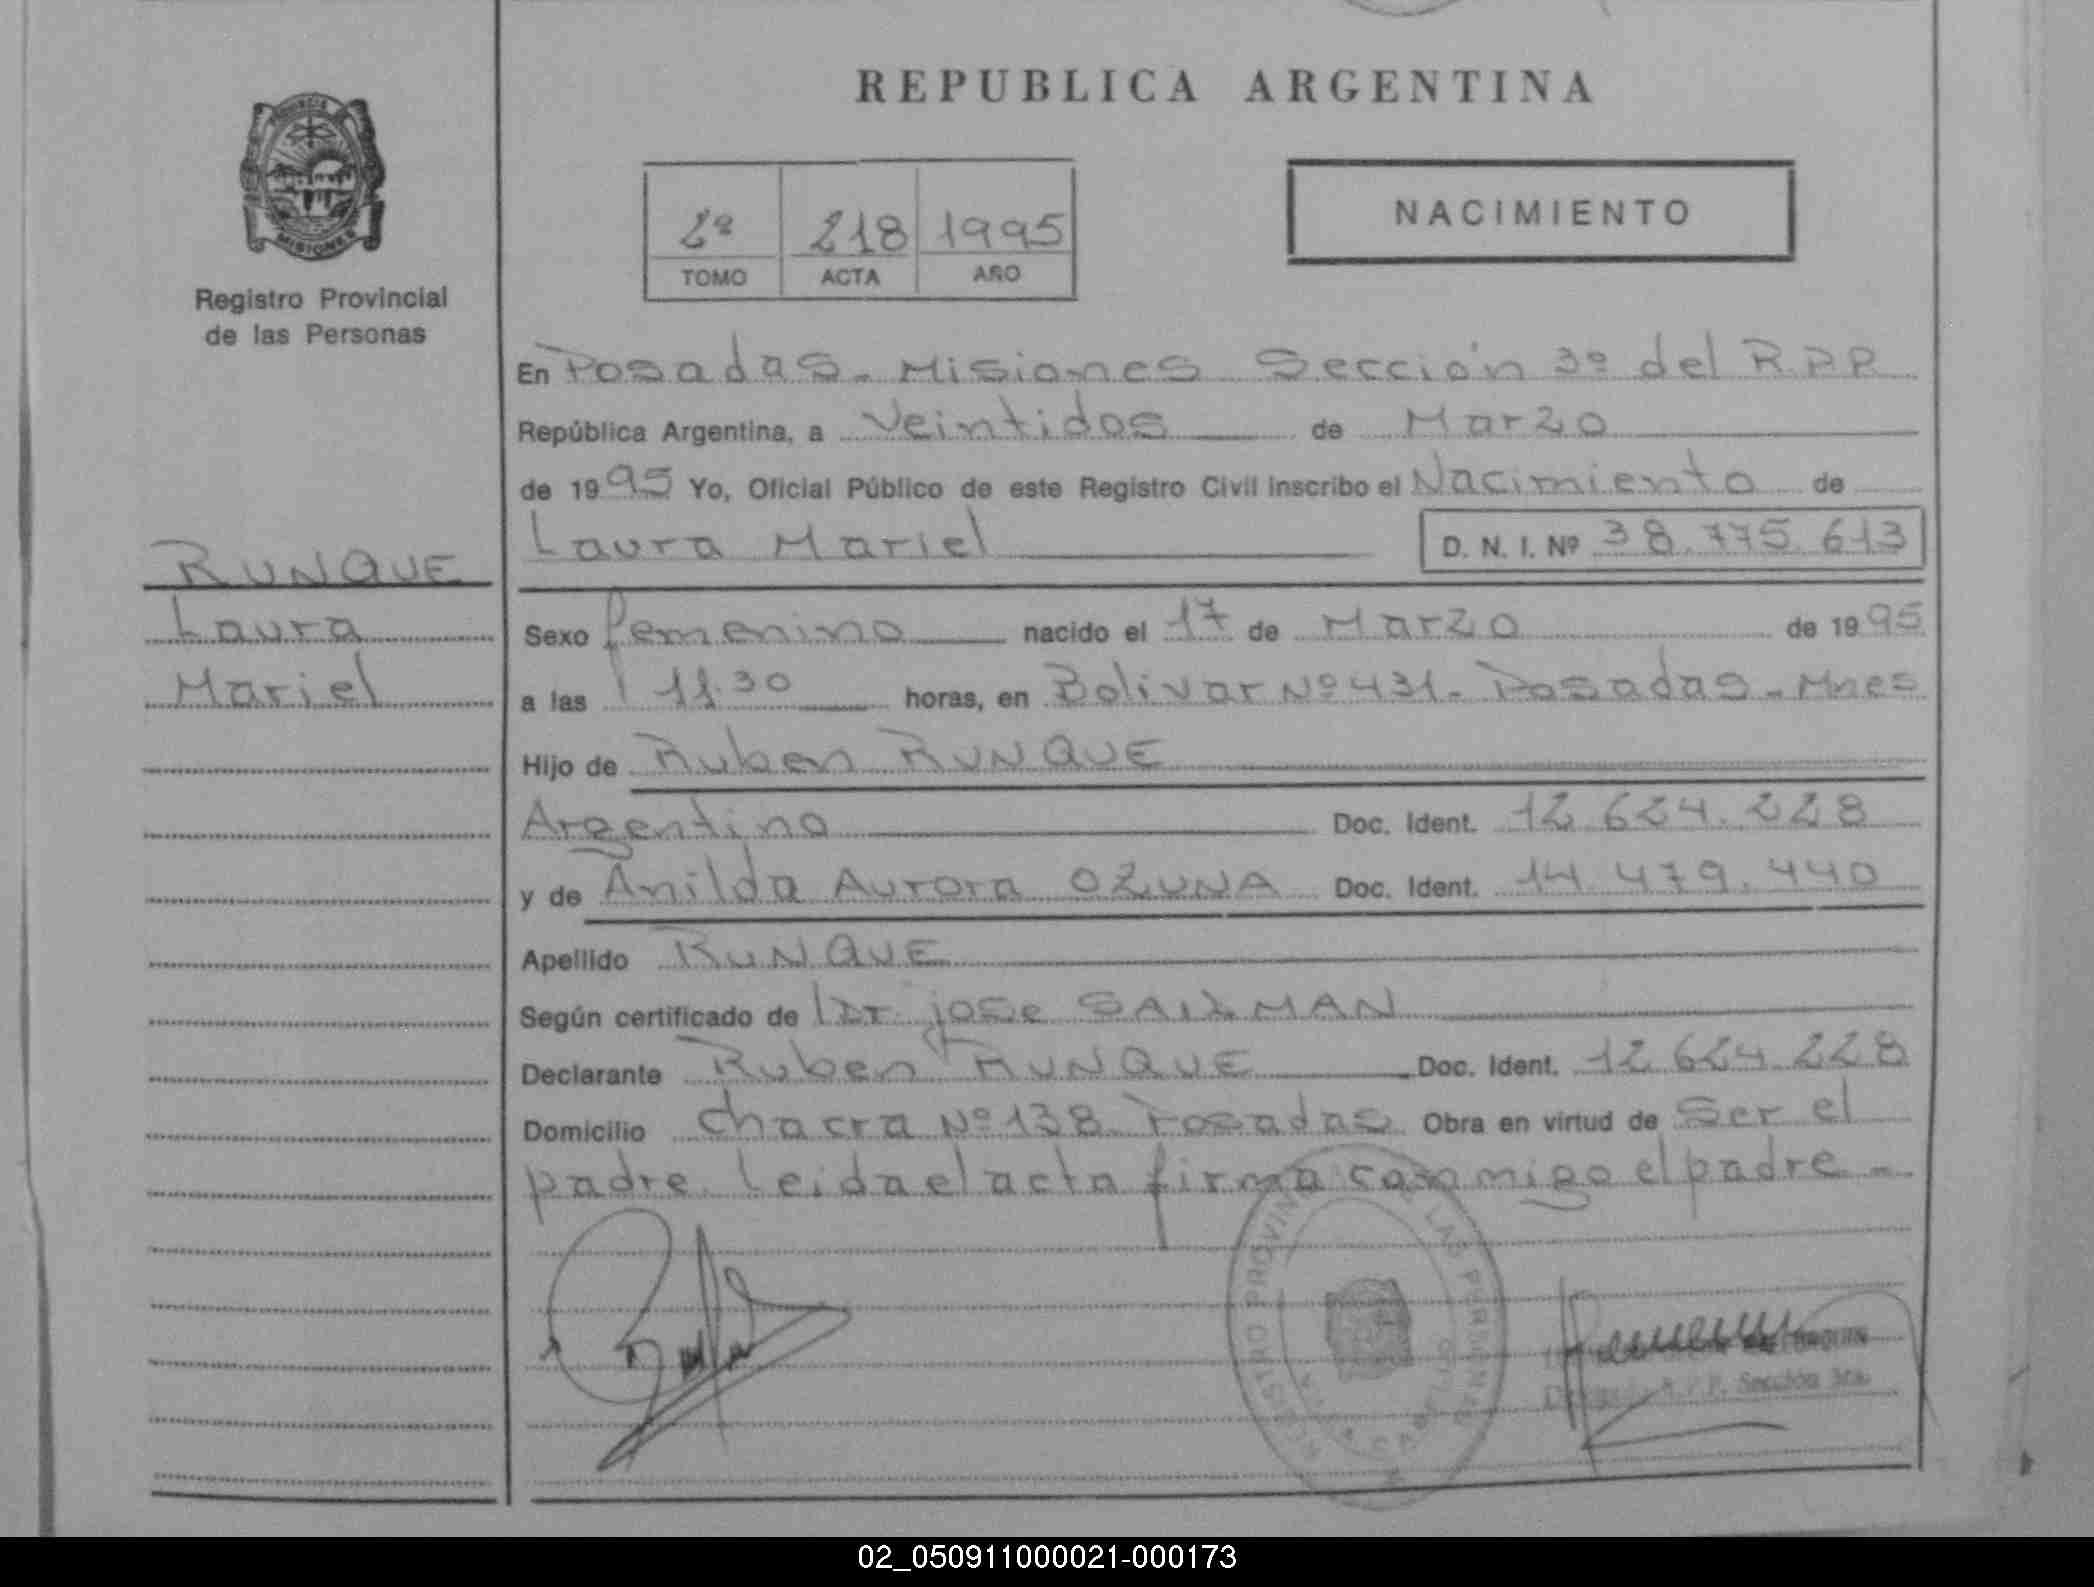 REPUBLICA ARGENTINA
MISIONES
Registro Provincial
de las Personas
2º 218 1995
TOMO ACTA AÑO
NACIMIENTO
En Posadas - Misiones Sección 3º del R.P.P.
República Argentina, a Veintidos de Marzo
de 1995 Yo, Oficial Público de este Registro Civil inscribo el Nacimiento de
Laura Mariel D. N. I. Nº 38.775.613
RUNQUE
Laura
Mariel
Sexo femenino nacido el 17 de Marzo de 1995
a las 11.30 horas, en Bolivar Nº 431 - Posadas - Mnes
Hijo de Ruben RUNQUE
Argentino Doc. Ident. 12.624.228
y de Anilda Aurora OZUNA Doc. Ident. 14.479.440
Apellido RUNQUE
Según certificado de Dr. jose
Declarante Ruben RUNQUE Doc. Ident. 12.624.228
Domicilio Chacra Nº 138 Posadas Obra en virtud de Ser el
padre. Leida el acta firma conmigo el padre -
REGISTRO PROVINCIAL DE LAS PERSONAS
R.P.P. Sección 3ra.
02_050911000021-000173